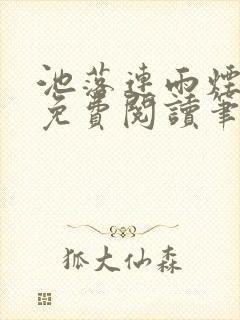 池落连雨煙
免費閱讀筆
狐大仙森